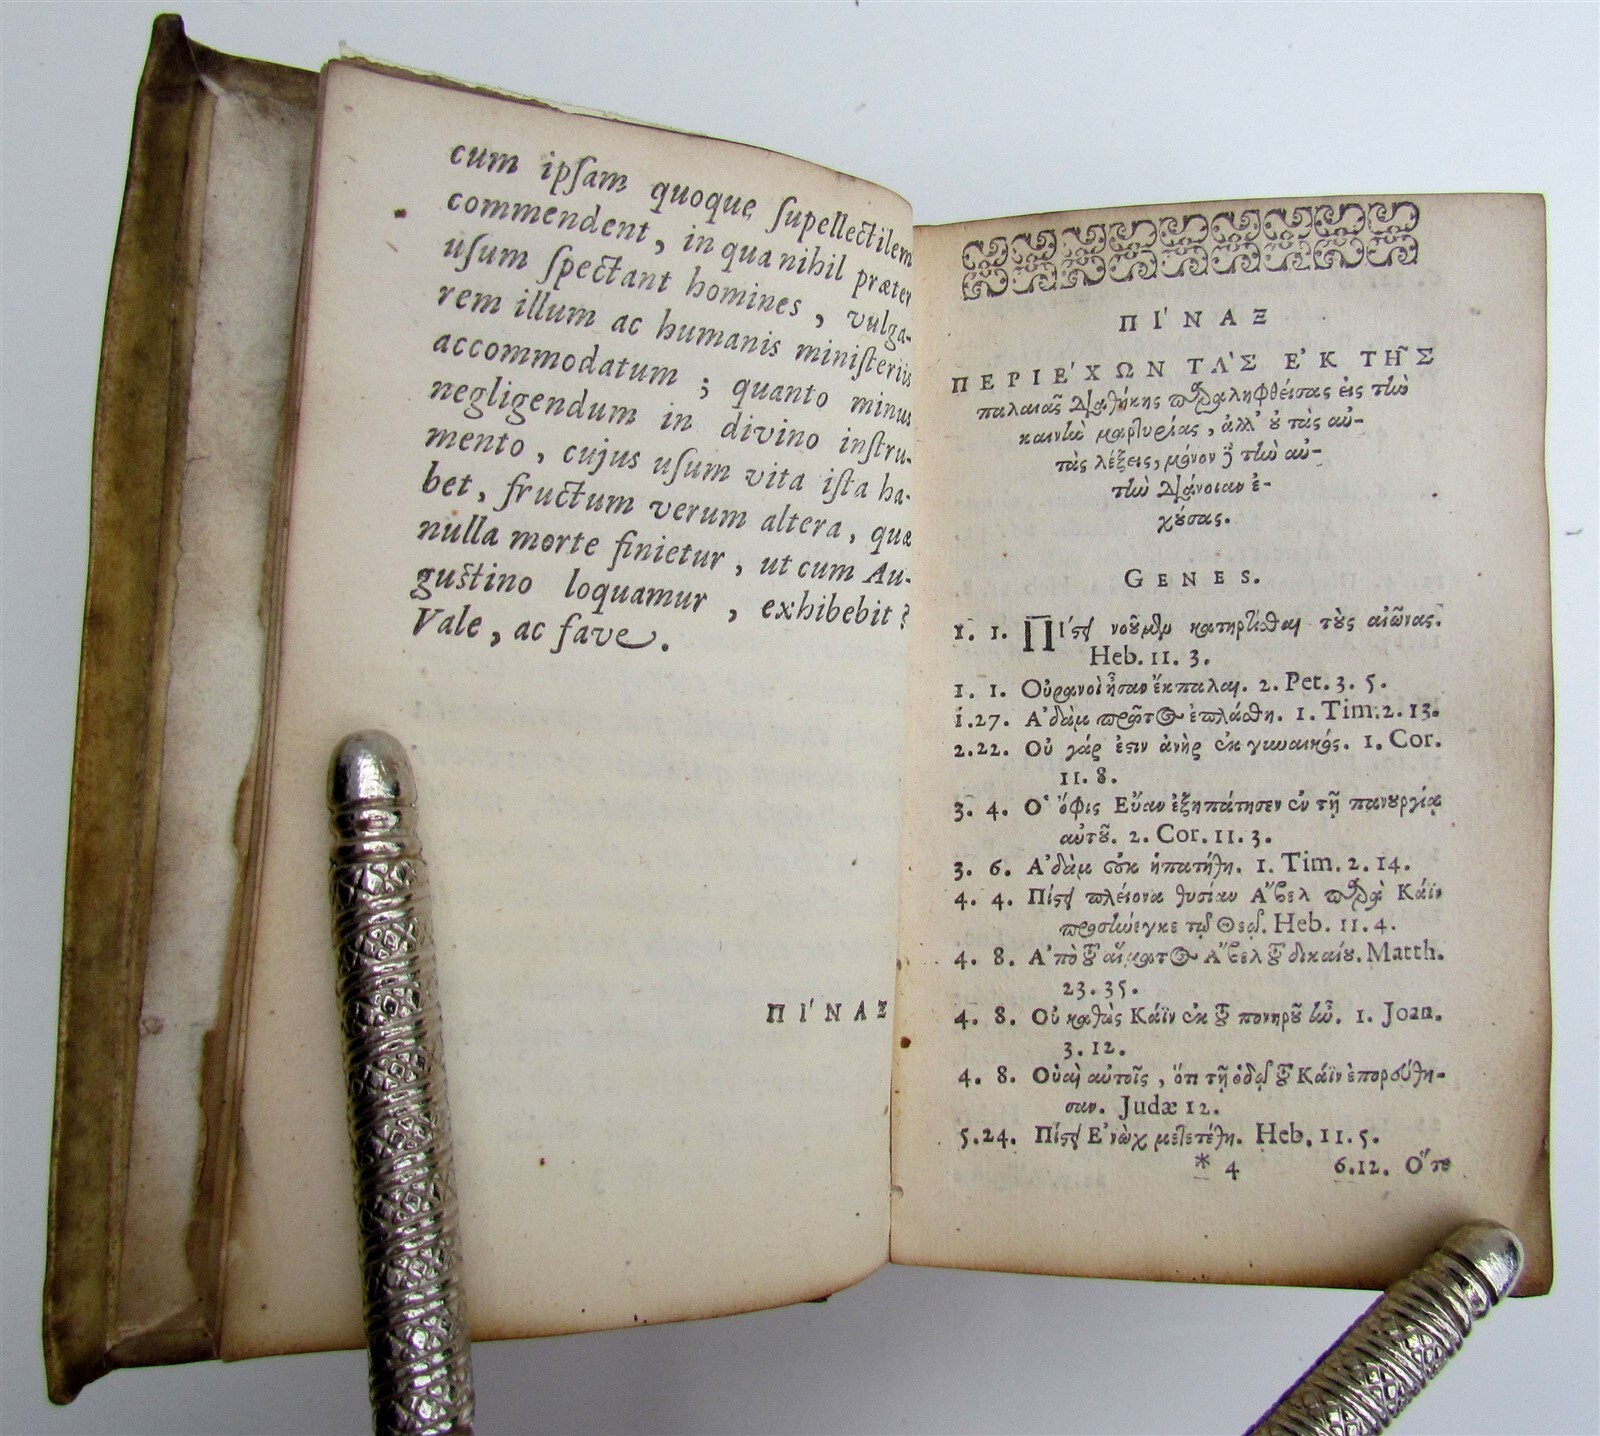 cum ipſam quoque ſupellectilem
commendent, in qua nihil præter
uſum ſpectant homines, vulga-
rem illum ac humanis miniſteriis
accommodatum; quanto minus
negligendum in divino inſtru-
mento, cujus uſum vita iſta ha-
bet, fructum verum altera, quæ
nulla morte finietur, ut cum Au-
guſtino loquamur, exhibebit?
Vale, ac fave.
ΠΙ΄ΝΑΞ
ΠΙ΄ΝΑΞ
ΠΕΡΙΕ΄ΧΩΝ ΤΑ`Σ Ε᾿Κ ΤΗ͂Σ
παλαιᾶς Διαθήκης παραληφθείσας εἰς τὴν
καινὴν μαρτυρίας, ἀλλ' ȣ τὰς αὐ-
τὰς λέξεις, μόνον ἢ τὴν αὐ-
τὴν Διάνοιαν ἐ-
χȣσας.
GENES.
1. 1. Πίστει νοοῦμεν κατηρτίσθαι τȣ̀ς αἰῶνας.
Heb. 11. 3.
1. 1. Οὐρανοὶ ἦσαν ἔκπαλαι. 2. Pet. 3. 5.
1.27. Α᾿δὰμ πρῶτος ἐπλάσθη. 1. Tim. 2. 13.
2.22. Οὐ γάρ ἐστιν ἀνὴρ ἐκ γυναικός. 1. Cor.
11. 8.
3. 4. Ο῾ ὄφις Εὔαν ἐξηπάτησεν ἐν τῇ πανȣργίᾳ
αὐτȣ͂. 2. Cor. 11. 3.
3. 6. Α᾿δὰμ οὐκ ἠπατήθη. 1. Tim. 2. 14.
4. 4. Πίστει πλείονα θυσίαν Α῎βελ παρὰ Κάϊν
προσήνεγκε τῷ Θεῷ. Heb. 11. 4.
4. 8. Α᾿πὸ τȣ͂ αἵματος Α῎βελ τȣ͂ δικαίȣ. Matth.
23. 35.
4. 8. Οὐ καθὼς Κάϊν ἐκ τȣ͂ πονηρȣ͂ ἦν. 1. Joan.
3. 12.
4. 8. Οὐαὶ αὐτοῖς, ὅτι τῇ ὁδῷ τȣ͂ Κάϊν ἐπορεύθη-
σαν. Judæ 12.
5.24. Πίστει Ε᾿νὼχ μετετέθη. Heb. 11. 5.
* 4 6.12. Ο῞τε